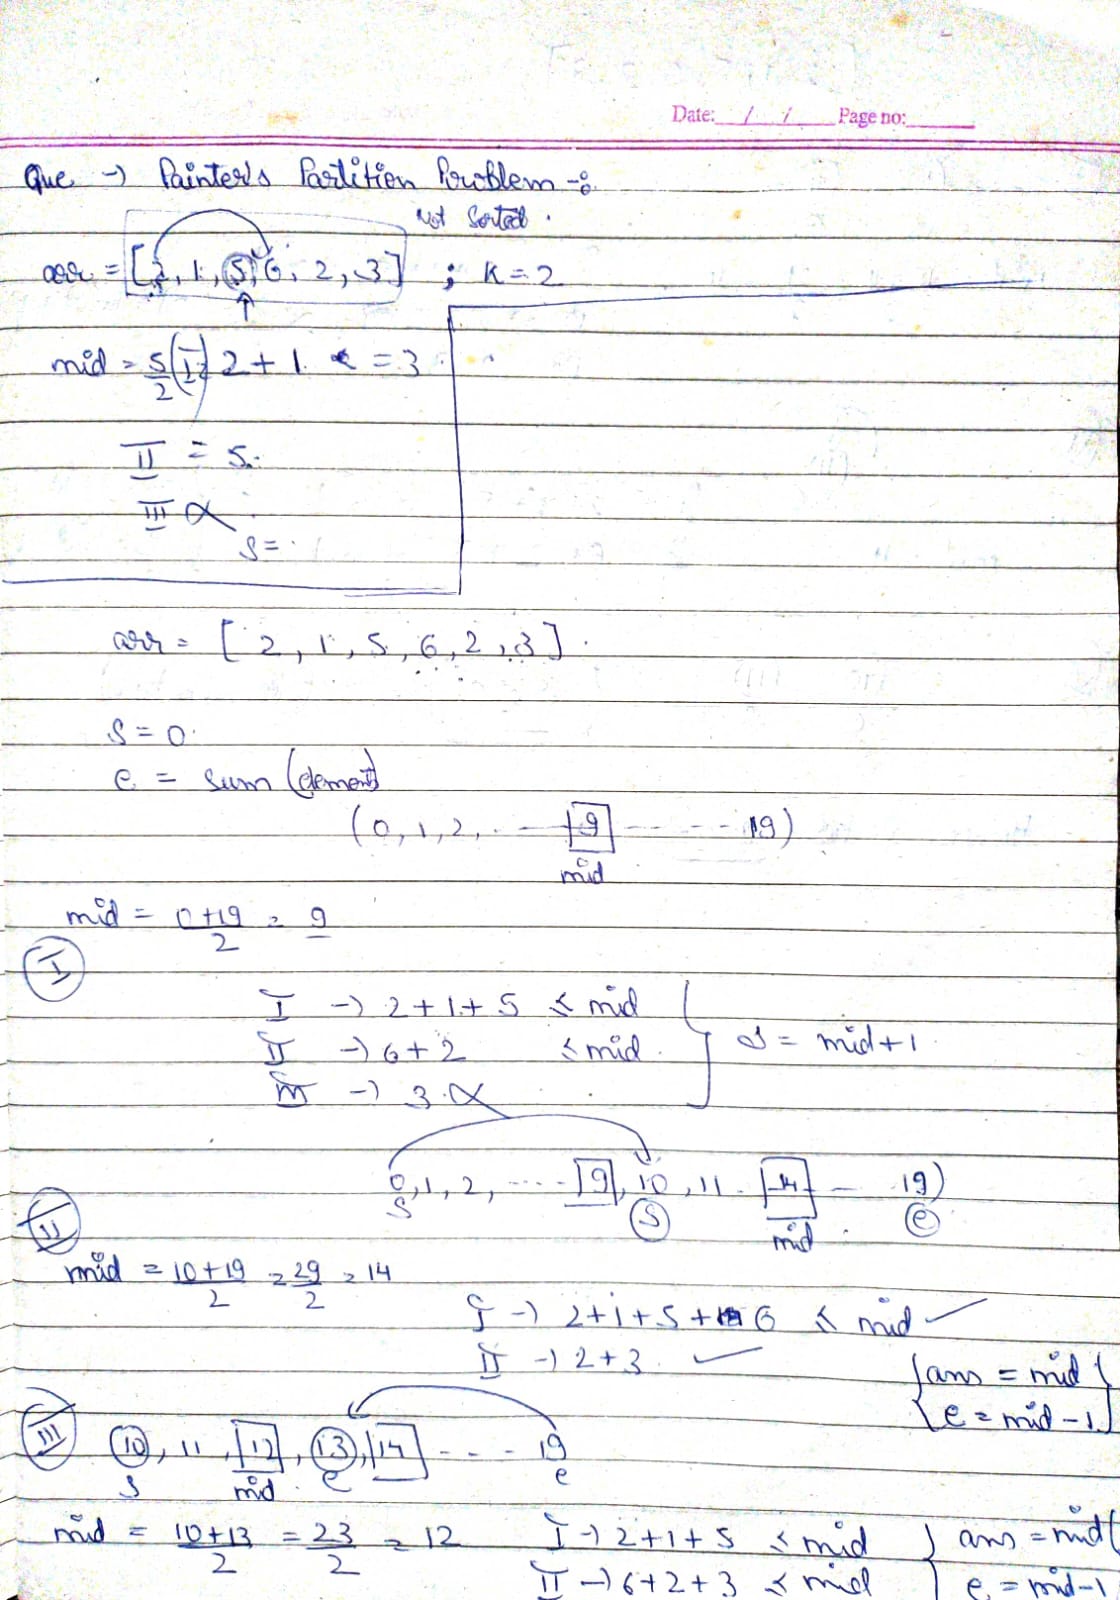 Date: / / Page no:
Que → Painter's Partition Problem -:
Not Sorted.
arr = [2, 1, 5, 6, 2, 3] ; K = 2
mid = 5/2 (I) 2 + 1 = 3
II = 5.
III ×
S =
arr = [2, 1, 5, 6, 2, 3]
S = 0
e = sum (element)
(0, 1, 2, ---- 9 ----- 19)
mid
mid = 0+19/2 = 9
I
I → 2+1+5 ≤ mid
II → 6+2 ≤ mid } S = mid+1
III → 3 ×
0, 1, 2, ---- 9, 10, 11 - 14 - 19)
S S mid e
II
mid = 10+19/2 = 29/2 = 14
I → 2+1+5+6 ≤ mid ✓
II → 2+3 ✓
{ans = mid
e = mid-1}
III 10, 11, 12, 13, 14 ---- 19
S mid e e
mid = 10+13/2 = 23/2 = 12 I → 2+1+5 ≤ mid } ans = mid
II → 6+2+3 ≤ mid e = mid-1